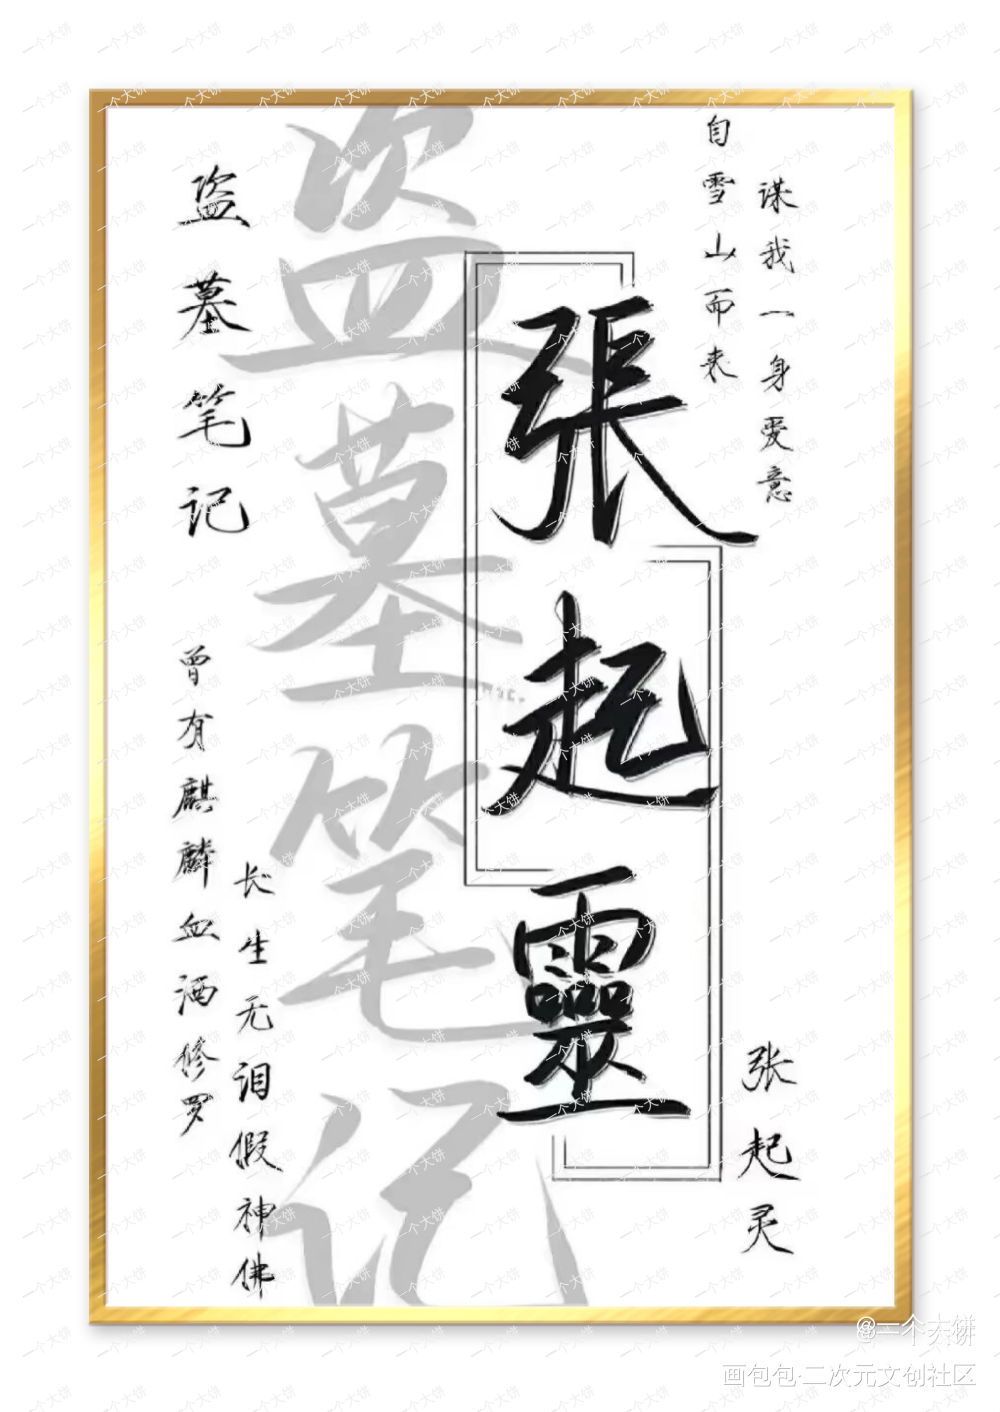 自雪山而来
谋我一身爱意
張起靈
张起灵
盗墓笔记
盗墓笔记
曾有麒麟血洒修罗
长生无泪假神佛
@一个大饼
画包包·二次元文创社区
一个大饼